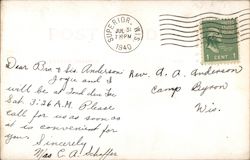 POST
SUPERIOR, WIS.
JUL 31
7 PM
1940
1 CENT 1
Dear Bro & Sis. Anderson
Joyce and I
will be at Fond du Lac
Sat. 3:26 A.M. Please
call for us as soon as
it is convenient for
you. Sincerely
Mrs C. A. Schaffer
Rev. A. A. Anderson
Camp Byron
Wis.